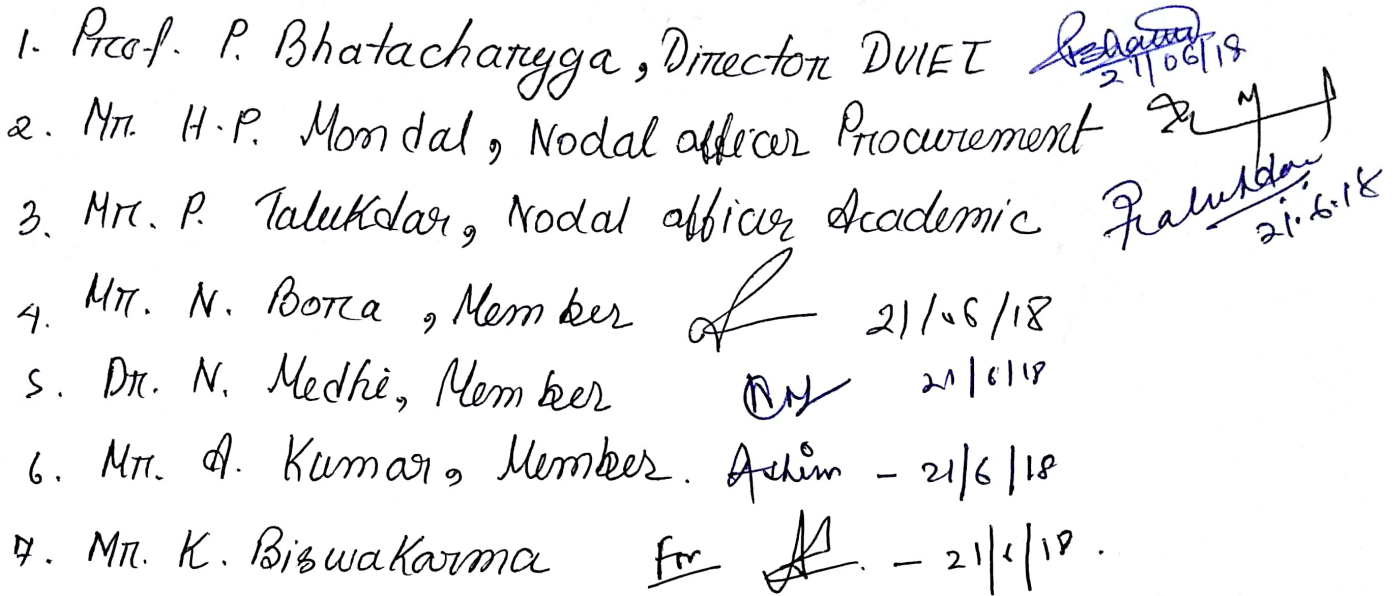 1. Prof. P. Bhatacharygga, Director DUIET 21/06/18
2. Mr. H.P. Mondal, Nodal officer Procurement
3. Mr. P. Talukdar, Nodal officer Academic 21.6.18
4. Mr. N. Bora, Member 21/06/18
5. Dr. N. Medhi, Member 21/6/18
6. Mr. A. Kumar, Member. - 21/6/18
7. Mr. K. Biswakarma For - 21/6/18.